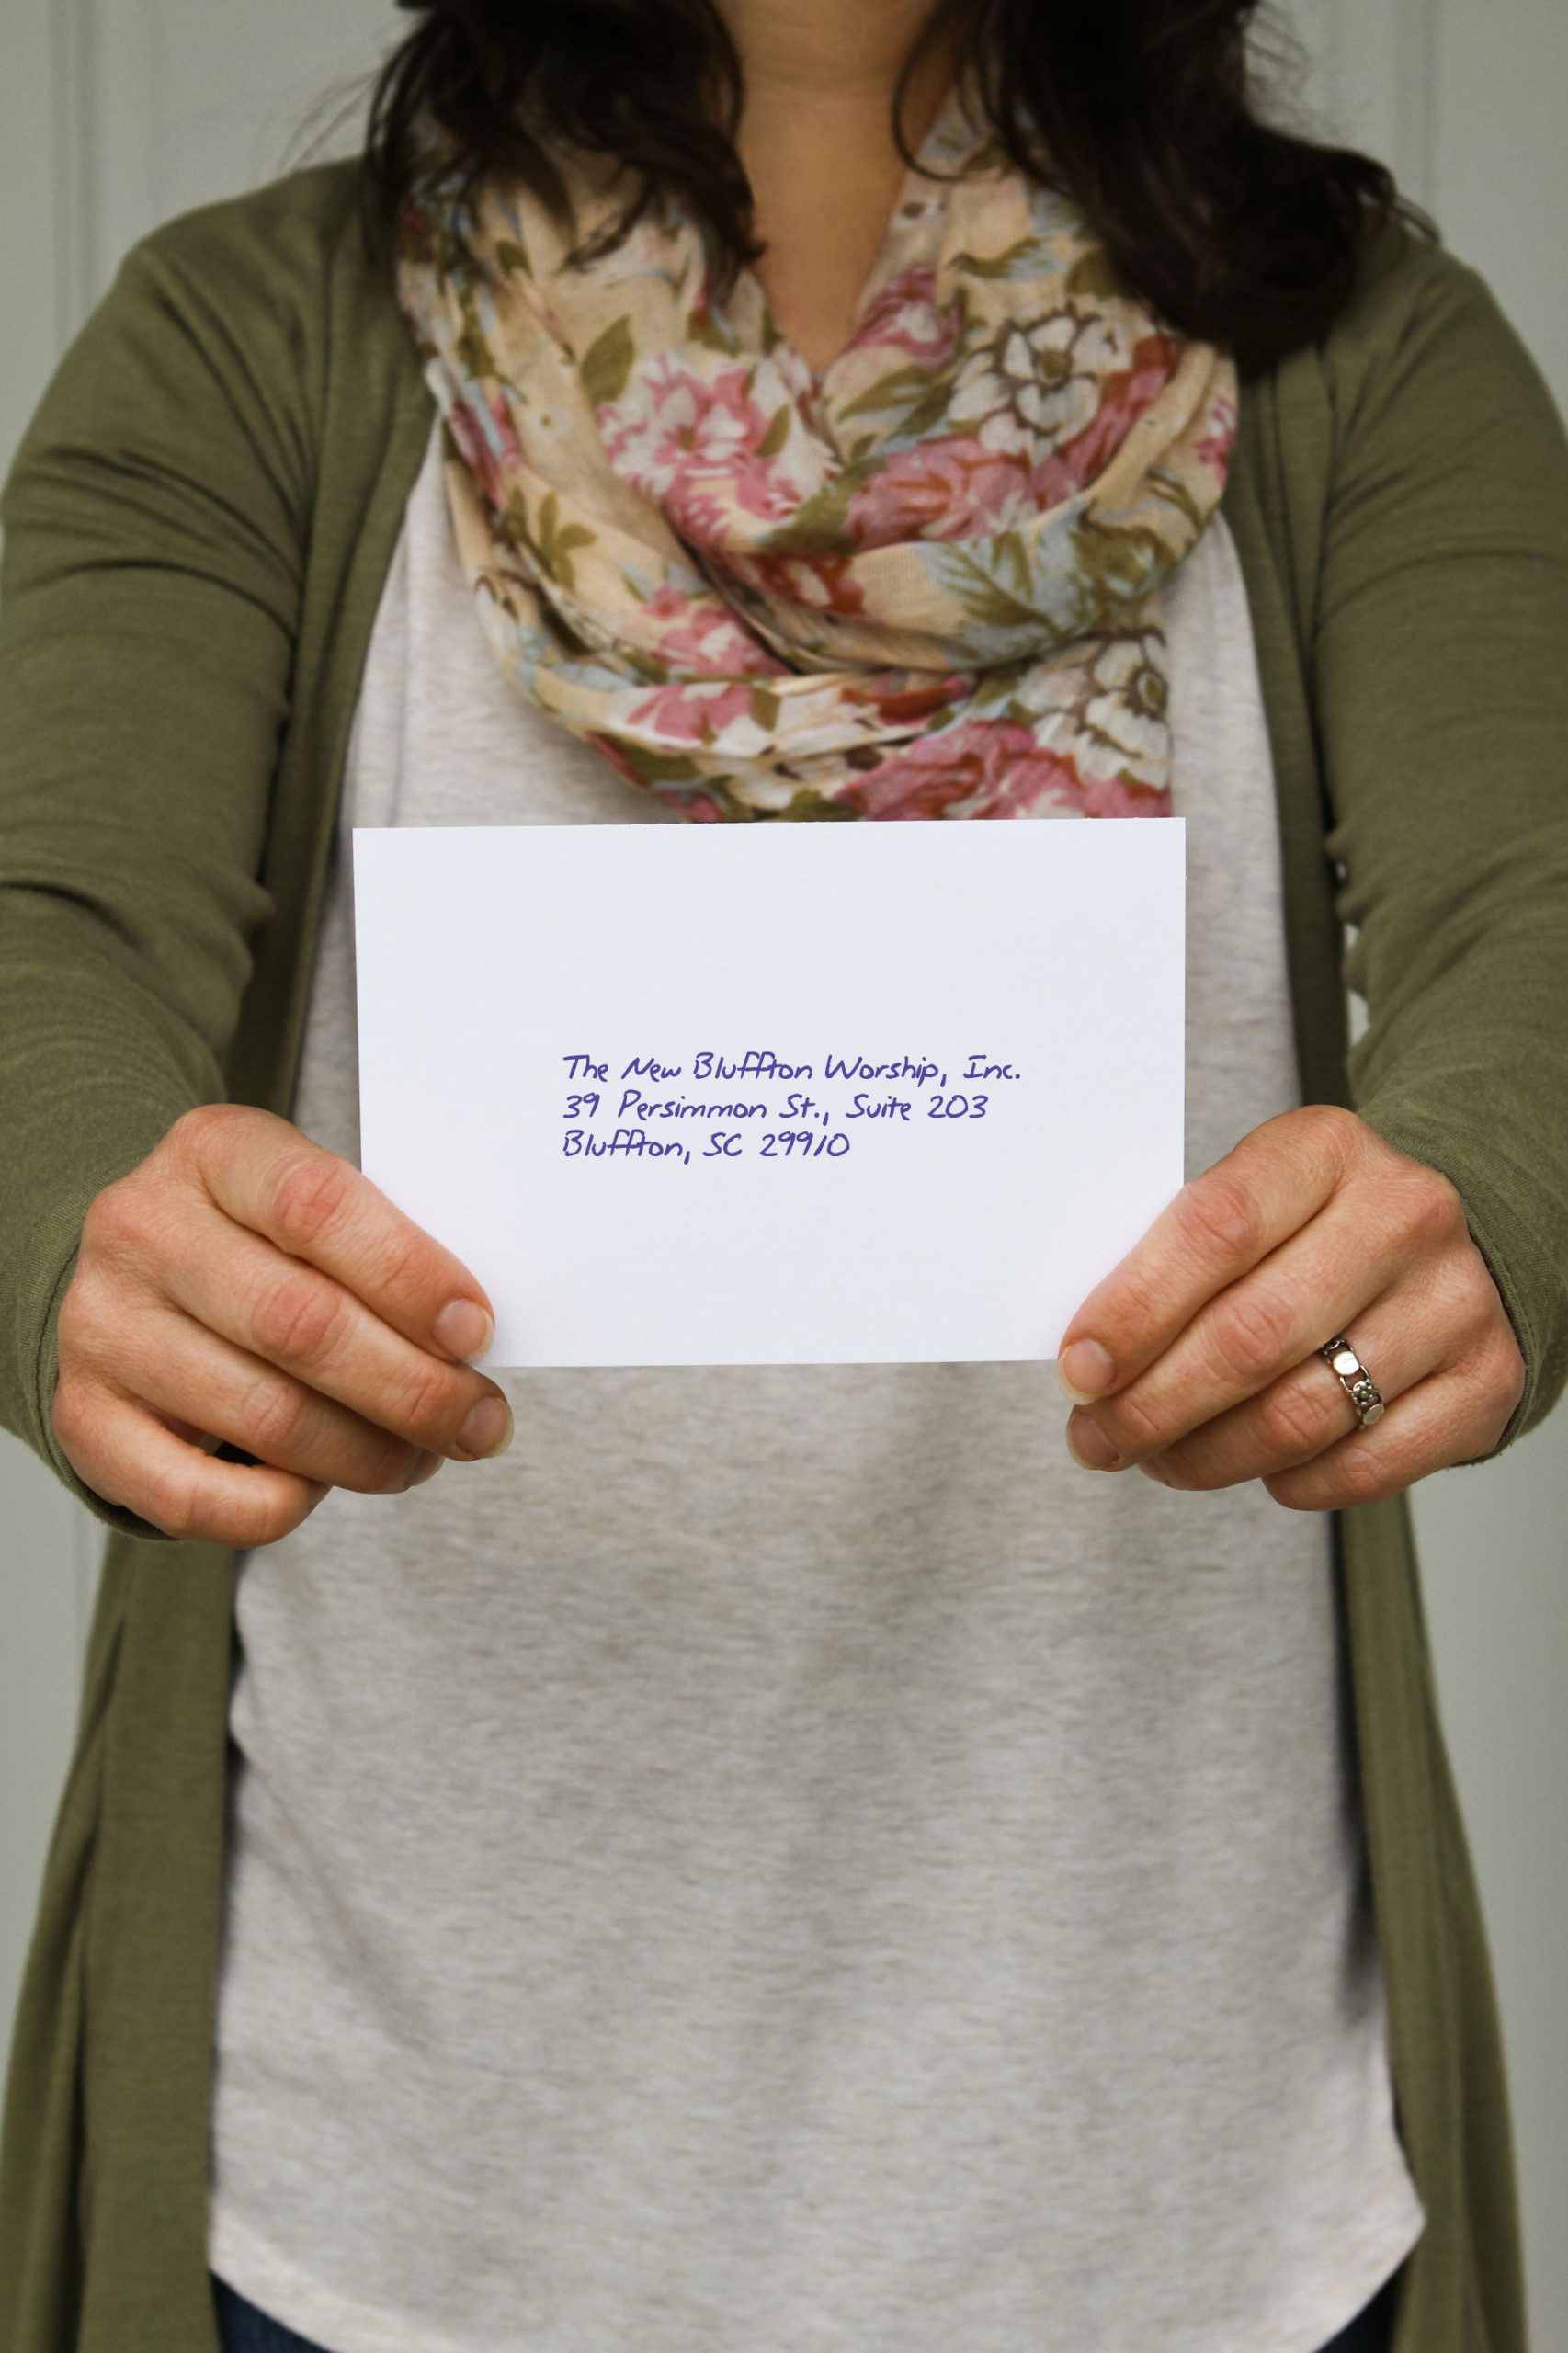 The New Bluffton Worship, Inc.
39 Persimmon St., Suite 203
Bluffton, SC 29910